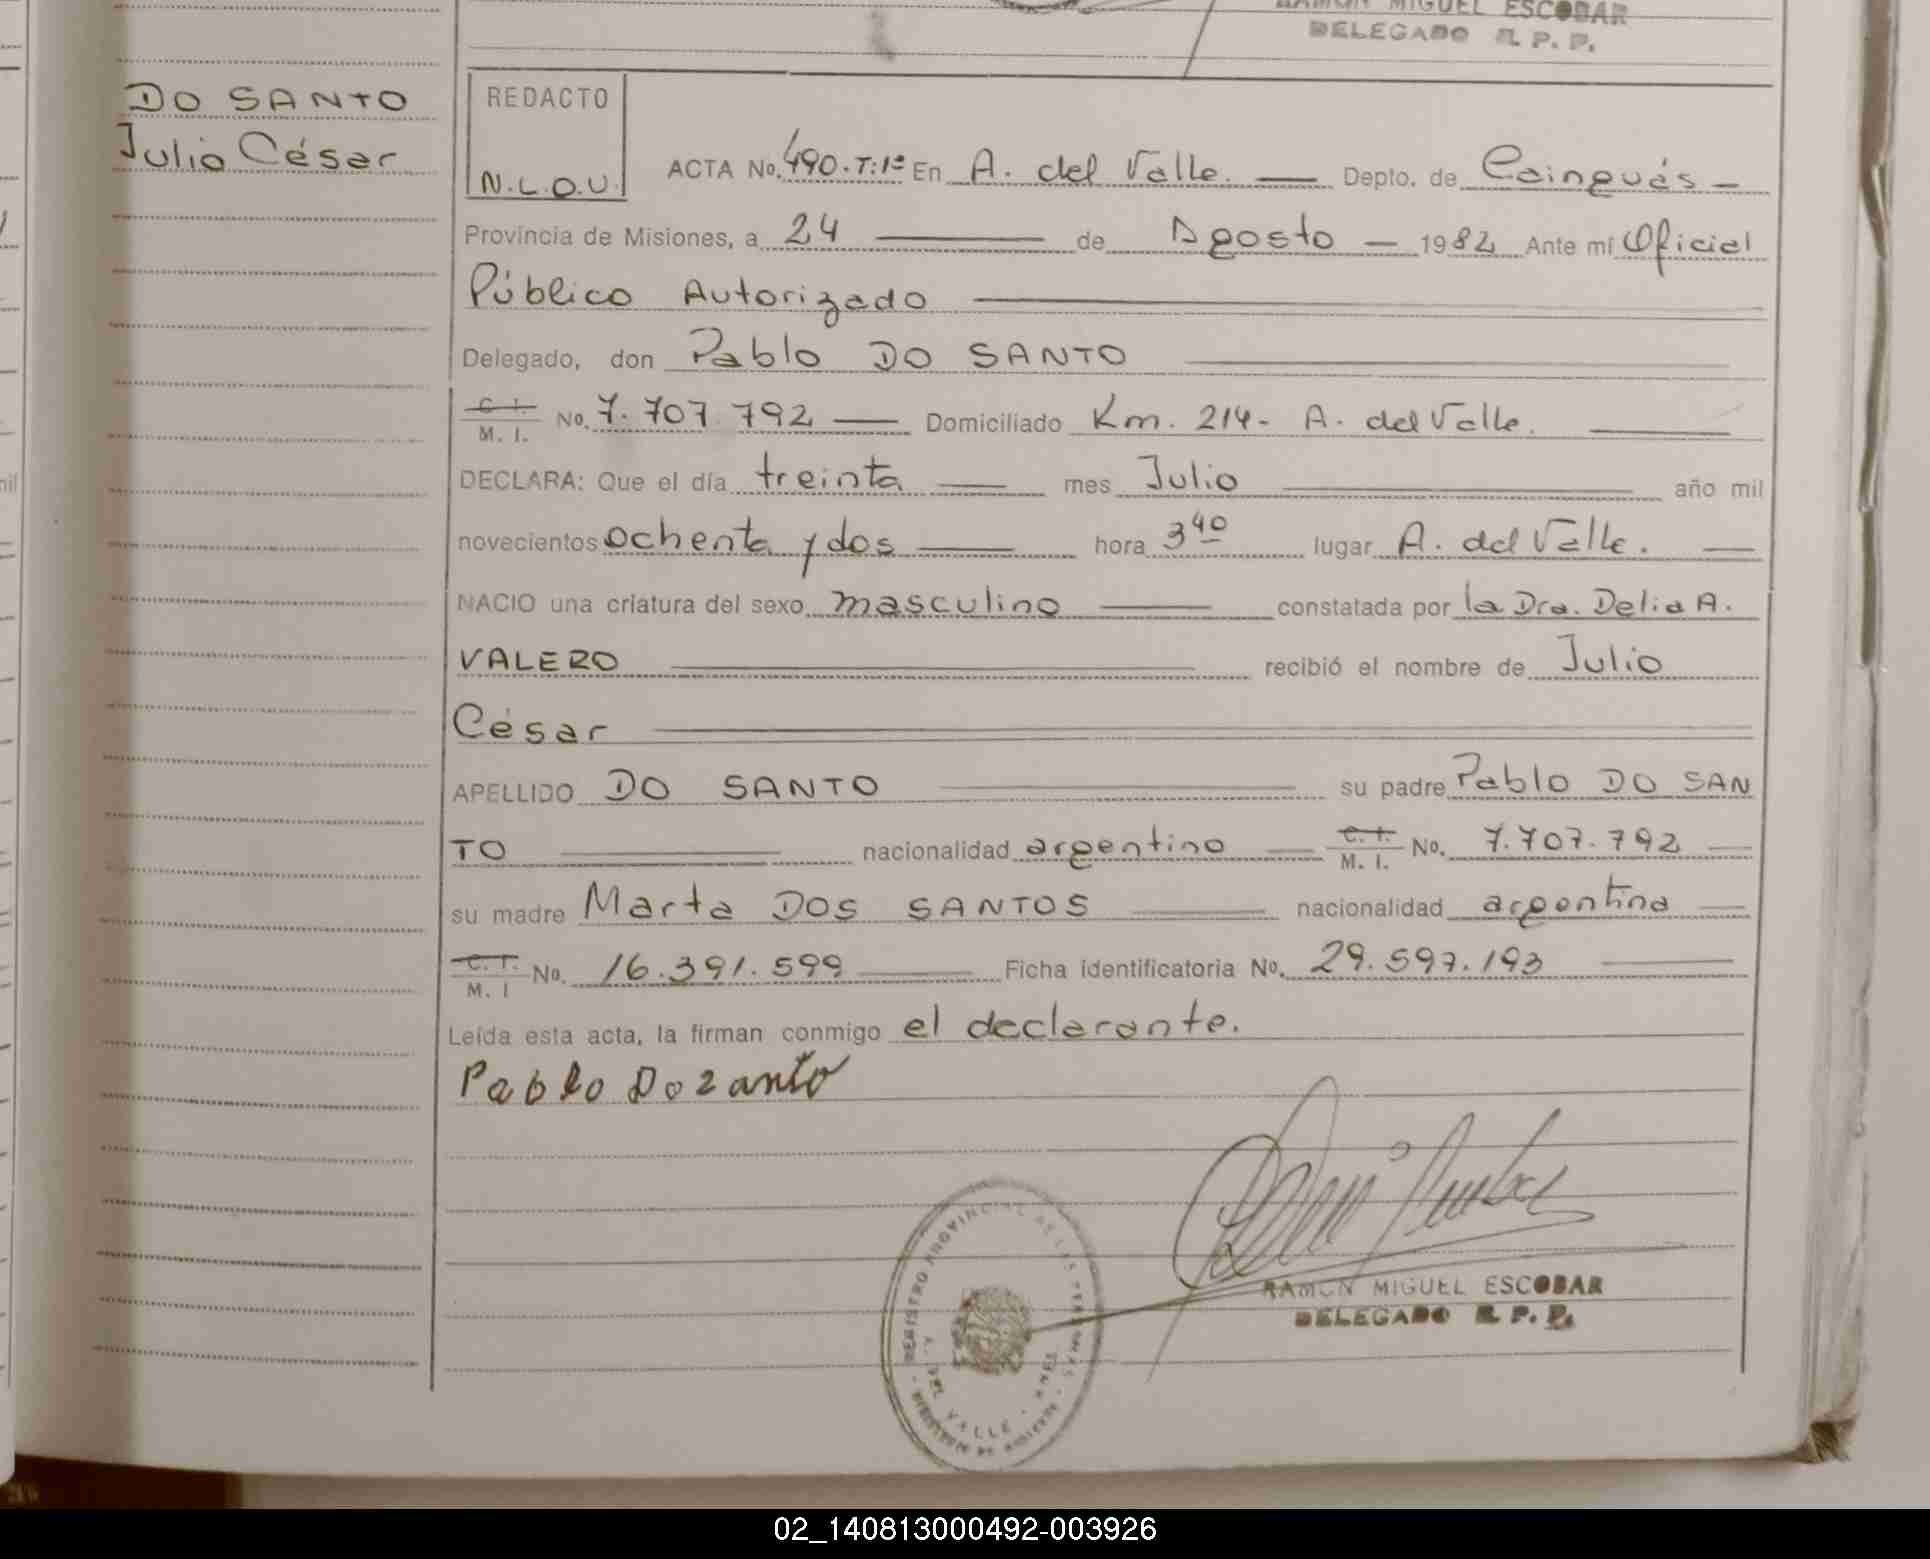 RAMON MIGUEL ESCOBAR
DELEGADO R. P. P.
DO SANTO
Julio César
REDACTO
N.L.O.U.
ACTA No. 490.T:1º En A. del Valle. Depto. de Cainguás
Provincia de Misiones, a 24 de Agosto 1982 Ante mí Oficial
Público Autorizado
Delegado, don Pablo DO SANTO
C. I. M. I. No. 7.707.792 Domiciliado Km. 214- A. del Valle.
DECLARA: Que el día treinta mes Julio año mil
novecientos ochenta y dos hora 3 40 lugar A. del Valle.
NACIO una criatura del sexo masculino constatada por la Dra. Delia A.
VALERO recibió el nombre de Julio
César
APELLIDO DO SANTO su padre Pablo DO SAN
TO nacionalidad argentino C. I. M. I. No. 7.707.792
su madre Marta DOS SANTOS nacionalidad argentina
C. I. M. I No. 16.391.599 Ficha identificatoria No. 29.597.193
Leída esta acta, la firman conmigo el declarante.
Pablo Dozanto
RAMON MIGUEL ESCOBAR
DELEGADO R. P. P.
REGISTRO PROVINCIAL DE LAS PERSONAS
A. DEL VALLE - MNES
02_140813000492-003926